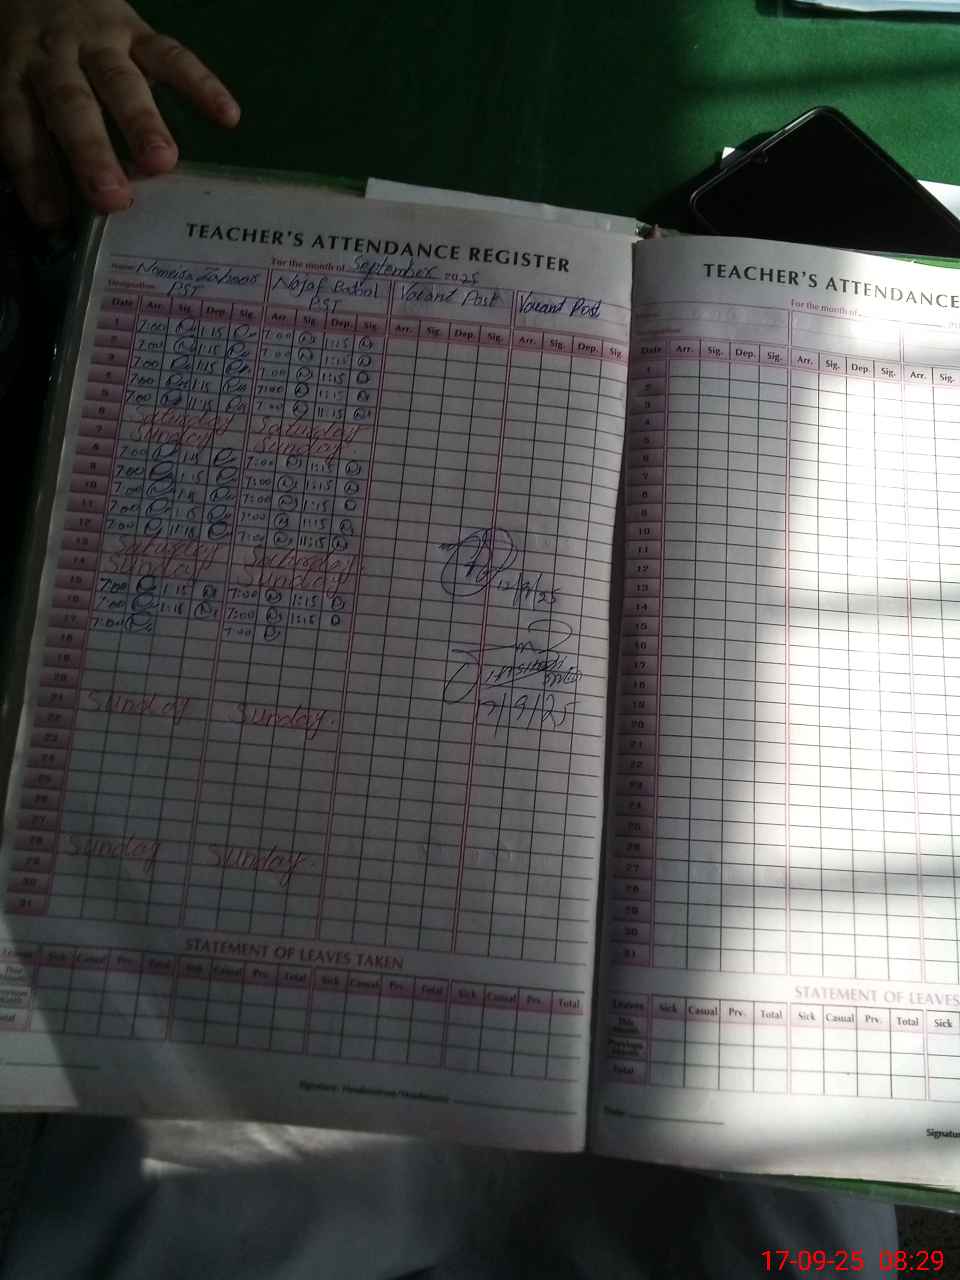 TEACHER'S ATTENDANCE REGISTER
For the month of September 2025
Name Zahoor Najaf Batool Vacant Post Vacant Post
Designation PST PST
Date Arr. Sig. Dep. Sig. Arr. Sig. Dep. Sig. Arr. Sig. Dep. Sig. Arr. Sig. Dep. Sig.
1 7:00 1:15 7:00 1:15
2 7:00 1:15 7:00 1:15
3 7:00 1:15 7:00 1:15
4 7:00 1:15 7:00 1:15
5 7:00 11:15 7:00 11:15
6 Saturday Saturday
7 Sunday Sunday
8 7:00 1:15 7:00 1:15
9 7:00 1:15 7:00 1:15
10 7:00 1:15 7:00 1:15
11 7:00 1:15 7:00 1:15
12 7:00 11:15 7:00 11:15
13 Saturday Saturday
14 Sunday Sunday
15 7:00 1:15 7:00 1:15
16 7:00 1:15 7:00 1:15
17 7:00 7:00
18
19
20
21 Sunday Sunday
22
23
24
25
26
27
28 Sunday Sunday
29
30
31
12/9/25
17/9/25
STATEMENT OF LEAVES TAKEN
Leaves Sick Casual Prv. Total Sick Casual Prv. Total Sick Casual Prv. Total Sick Casual Prv. Total
Total
Signature
TEACHER'S ATTENDANCE
For the month of
Date Arr. Sig. Dep. Sig. Arr. Sig. Dep. Sig. Arr. Sig.
1
2
3
4
5
6
7
8
9
10
11
12
13
14
15
16
17
18
19
20
21
22
23
24
25
26
27
28
29
30
31
STATEMENT OF LEAVES
Leaves Sick Casual Prv. Total Sick Casual Prv. Total Sick
This Month
Previous Month
Total
Date
Signatu
17-09-25 08:29